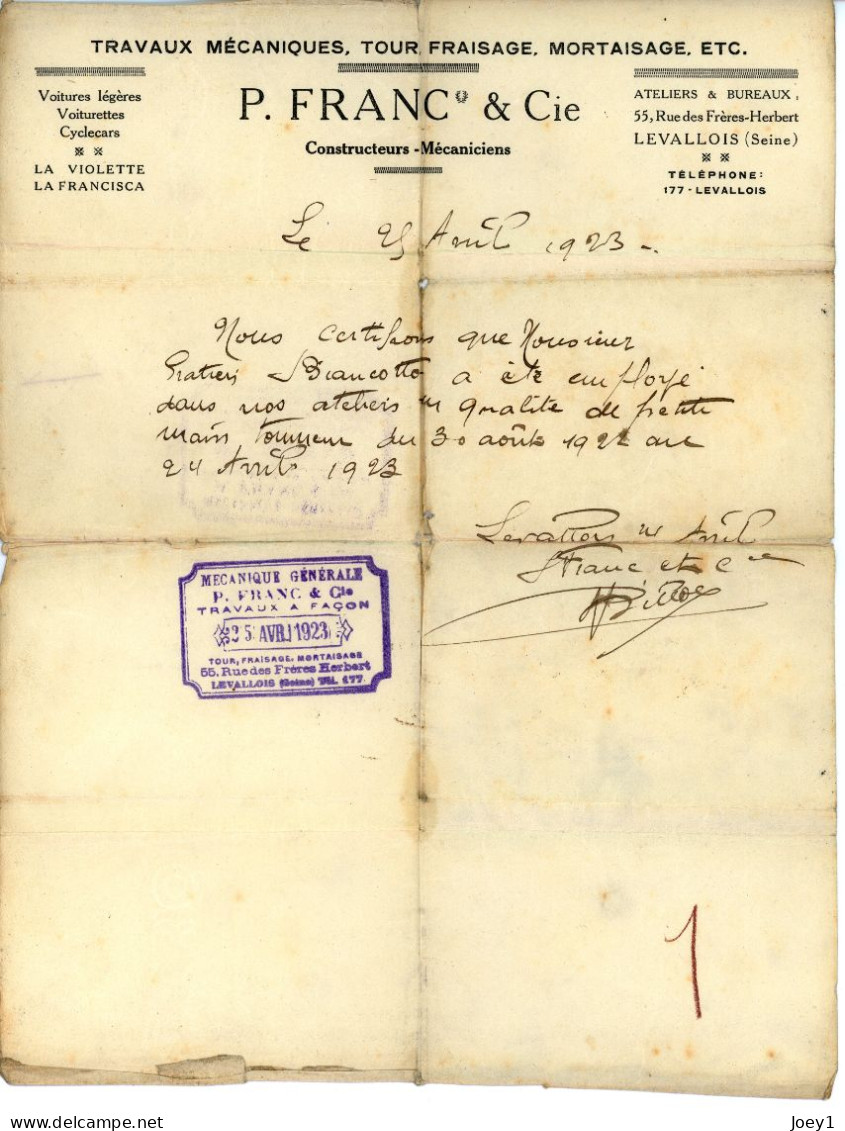 TRAVAUX MÉCANIQUES, TOUR, FRAISAGE, MORTAISAGE, ETC.
Voitures légères
Voiturettes
Cyclecars
LA VIOLETTE
LA FRANCISCA
P. FRANC & Cie
Constructeurs-Mécaniciens
ATELIERS & BUREAUX :
55, Rue des Frères-Herbert
LEVALLOIS (Seine)
TÉLÉPHONE :
177 - LEVALLOIS
Le 25 Avril 1923 -
Nous certifions que Monsieur
Biancotto a été employé
dans nos ateliers en qualité de petite
main tourneur du 30 août 1922 au
24 Avril 1923
Levallois Avril
Franc et Cie
MECANIQUE GÉNÉRALE
P. FRANC & Cie
TRAVAUX A FAÇON
25 AVRI 1923
TOUR, FRAISAGE, MORTAISAGE
55, Rue des Frères Herbert
LEVALLOIS (Seine) Tél. 177
1
Joey1